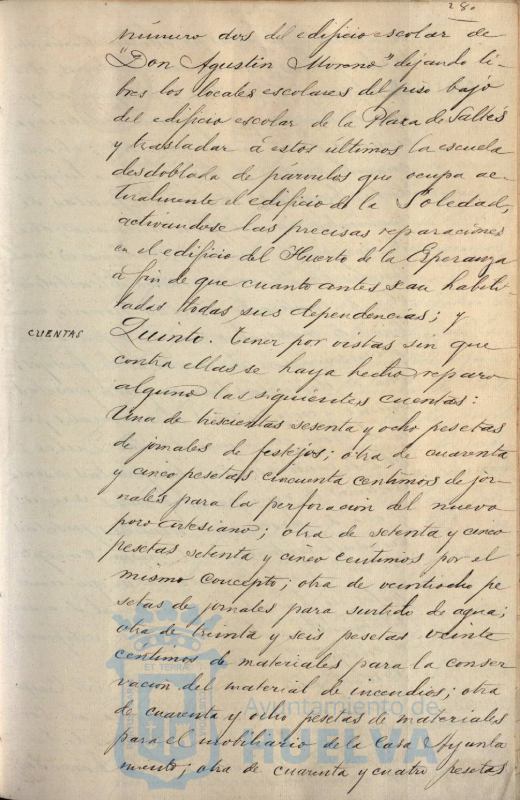 28.
número dos del edificio escolar de
"Don Agustín Moreno" dejando li-
bres los locales escolares del piso bajo
del edificio escolar de la Plaza de Saltés
y trasladar á estos últimos la escuela
desdoblada de párvulos que ocupa ac-
tualmente el edificio de la Soledad,
activandose las precisas reparaciones
en el edificio del Huerto de la Esperanza
á fin de que cuanto antes sean habili-
tadas todas sus dependencias; y
CUENTAS
Quinto. Tener por vistas sin que
contra ellas se haya hecho reparo
alguno las siguientes cuentas:
Una de trescientas sesenta y ocho pesetas
de jornales de festejos; otra de cuarenta
y cinco pesetas cincuenta centimos de jor-
nales para la perforación del nuevo
pozo artesiano; otra de setenta y cinco
pesetas setenta y cinco centimos por el
mismo concepto; otra de veintiocho pe
setas de jornales para surtido de agua;
otra de treinta y seis pesetas veinte
centimos de materiales para la conser
vación del material de incendios; otra
de cuarenta y ocho pesetas de materiales
para el mobiliario de la Casa Ayunta
miento; otra de cuarenta y cuatro pesetas
Ayuntamiento de
HUELVA